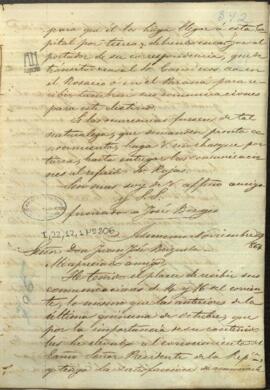 342
para que él los haga llegar á esta Ca-
pital por tierra, y deberá encargar al
portador de su correspondencia, que
en
el Rosario ó en el Paraná para re-
cibir tambien sus comunicaciones
para este destino.
Si las ocurrencias fuesen de tal
naturaleza, que demanden pronto co-
nocimiento, haga Vd un chasque por
tierra, hasta entregar las comunicacio-
nes al referido Sr Rojas.
Soy mas suyo de V. affmo amigo
y S. S.
firmado = José Berges
I-22,12,1 Nº 206
Asuncion Noviembre
Señor Don Juan José Brizuela
Mi apreciado amigo
He tenido el placer de recibir sus
comunicaciones de 14 y 16 del corrien-
te, lo mismo que las anteriores de la
última quincena de octubre, que
por la importancia de su contenido
las he elevado al conocimiento del
Excmo Señor Presidente de la Repú-